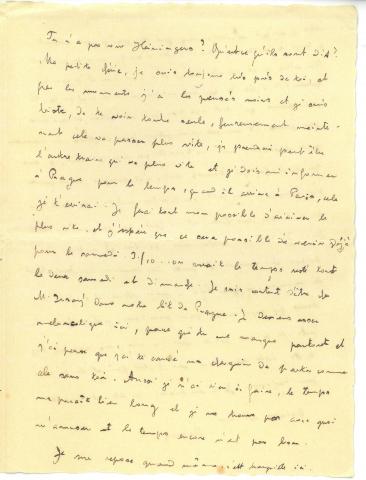 Tu n'as pas vu Heisingers? Qu'est-ce qu'ils ont dit?
Ma petite fée, je suis toujours très près de toi, et
par les moments j'ai les pensées noires et je suis
triste, de te voir toute seule, heureusement mainte-
nant cela va passer plus vite, je prendrai peut être
l'autre train qui va plus vite et je dois m'informer
à Prague pour le temps, quand il arrive à Paris, cela
je t'écrirai. Je fais tout mon possible d'arriver le
plus vite, et j'espère que ce sera possible de venir déjà
pour le samedi 3./10. on aurait le temps resté tout
le deux samedi et dimanche. Je suis content d'être de
dans notre lit de Prague. Je deviens assez
mélancolique ici, parce que tu me manques partout et
j'ai pensé que j'ai le comme
cela sans toi. Aussi je n'ai rien à faire, le temps
me paraît bien long et je ne trouve pas ceux qui
m'amusent et le temps encore n'est pas bon.
Je me repose quand même, c'est tranquille ici.